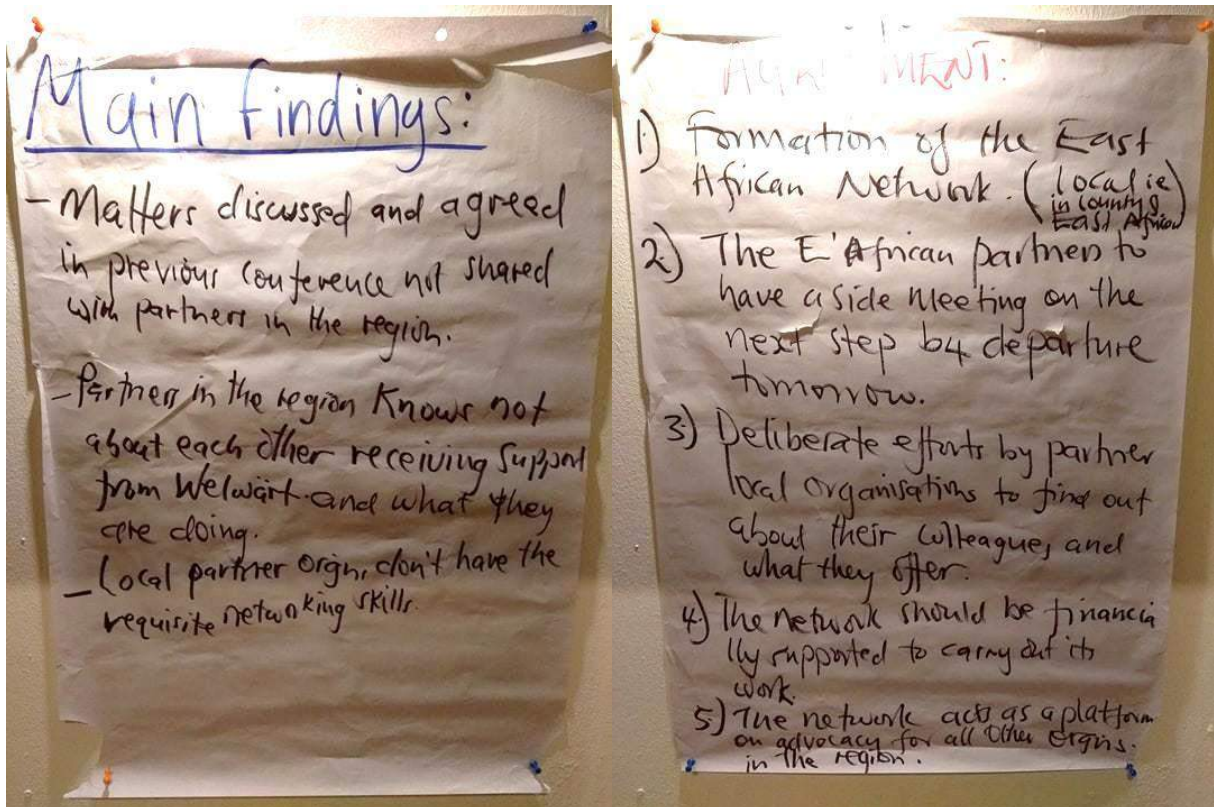 Main findings:
- Matters discussed and agreed
in previous conference not shared
with partners in the region.
- Partners in the region Knows not
about each other receiving support
from Welwärt and what they
are doing.
- Local partner orgn, don't have the
requisite networking skills.
MENT:
1) Formation of the East
African Network. (Local ie
in County &
East African)
2) The E'African partners to
have a side meeting on the
next step b4 departure
tomorrow.
3) Deliberate efforts by partner
local organisations to find out
about their colleagues, and
what they offer.
4) The network should be financia
lly supported to carry out its
work.
5) The network acts as a platform
on advocacy for all other orgns.
in the region.